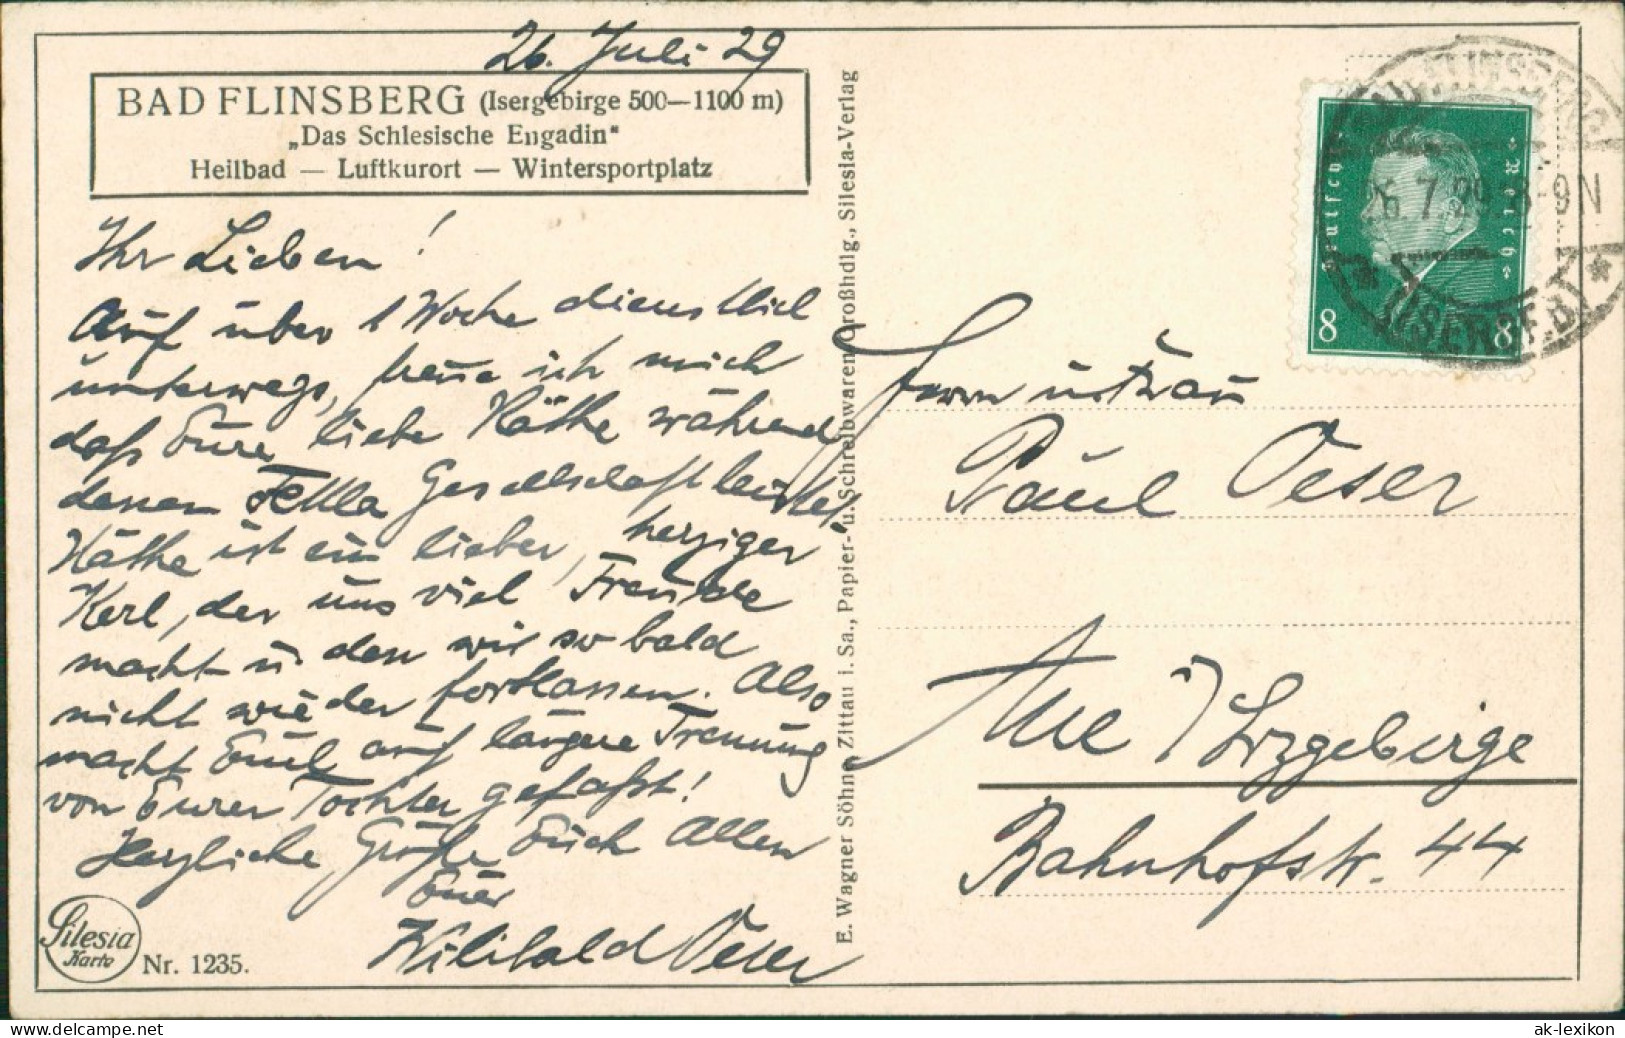 26. Juli 29
BAD FLINSBERG (Isergebirge 500—1100 m)
„Das Schlesische Engadin"
Heilbad — Luftkurort — Wintersportplatz
Ihr Lieben!
Auf über 1 Woche dienstlich
unterwegs, freue ich mich
daß Eure liebe Käthe während
dessen Gesellschaft leistet.
Käthe ist ein lieber, herziger
Kerl, der uns viel Freude
macht u. den wir so bald
nicht wieder fortlassen. Also
macht Euch auf längere Trennung
von Eurer Tochter gefaßt!
Herzliche Grüße Euch Allen
Euer
Willibald Oeser
Silesia
Karte
Nr. 1235.
E. Wagner Söhne Zittau i. Sa., Papier- u. Schreibwaren-Großhdlg., Silesia-Verlag
BAD FLINSBERG
26.7.29 8-9N
* (ISERGEB.) *
Deutsches Reich
8 8
Herrn u. Frau
Paul Oeser
Aue i/Erzgebirge
Bahnhofstr. 44
ak-lexikon.de
ak-lexikon